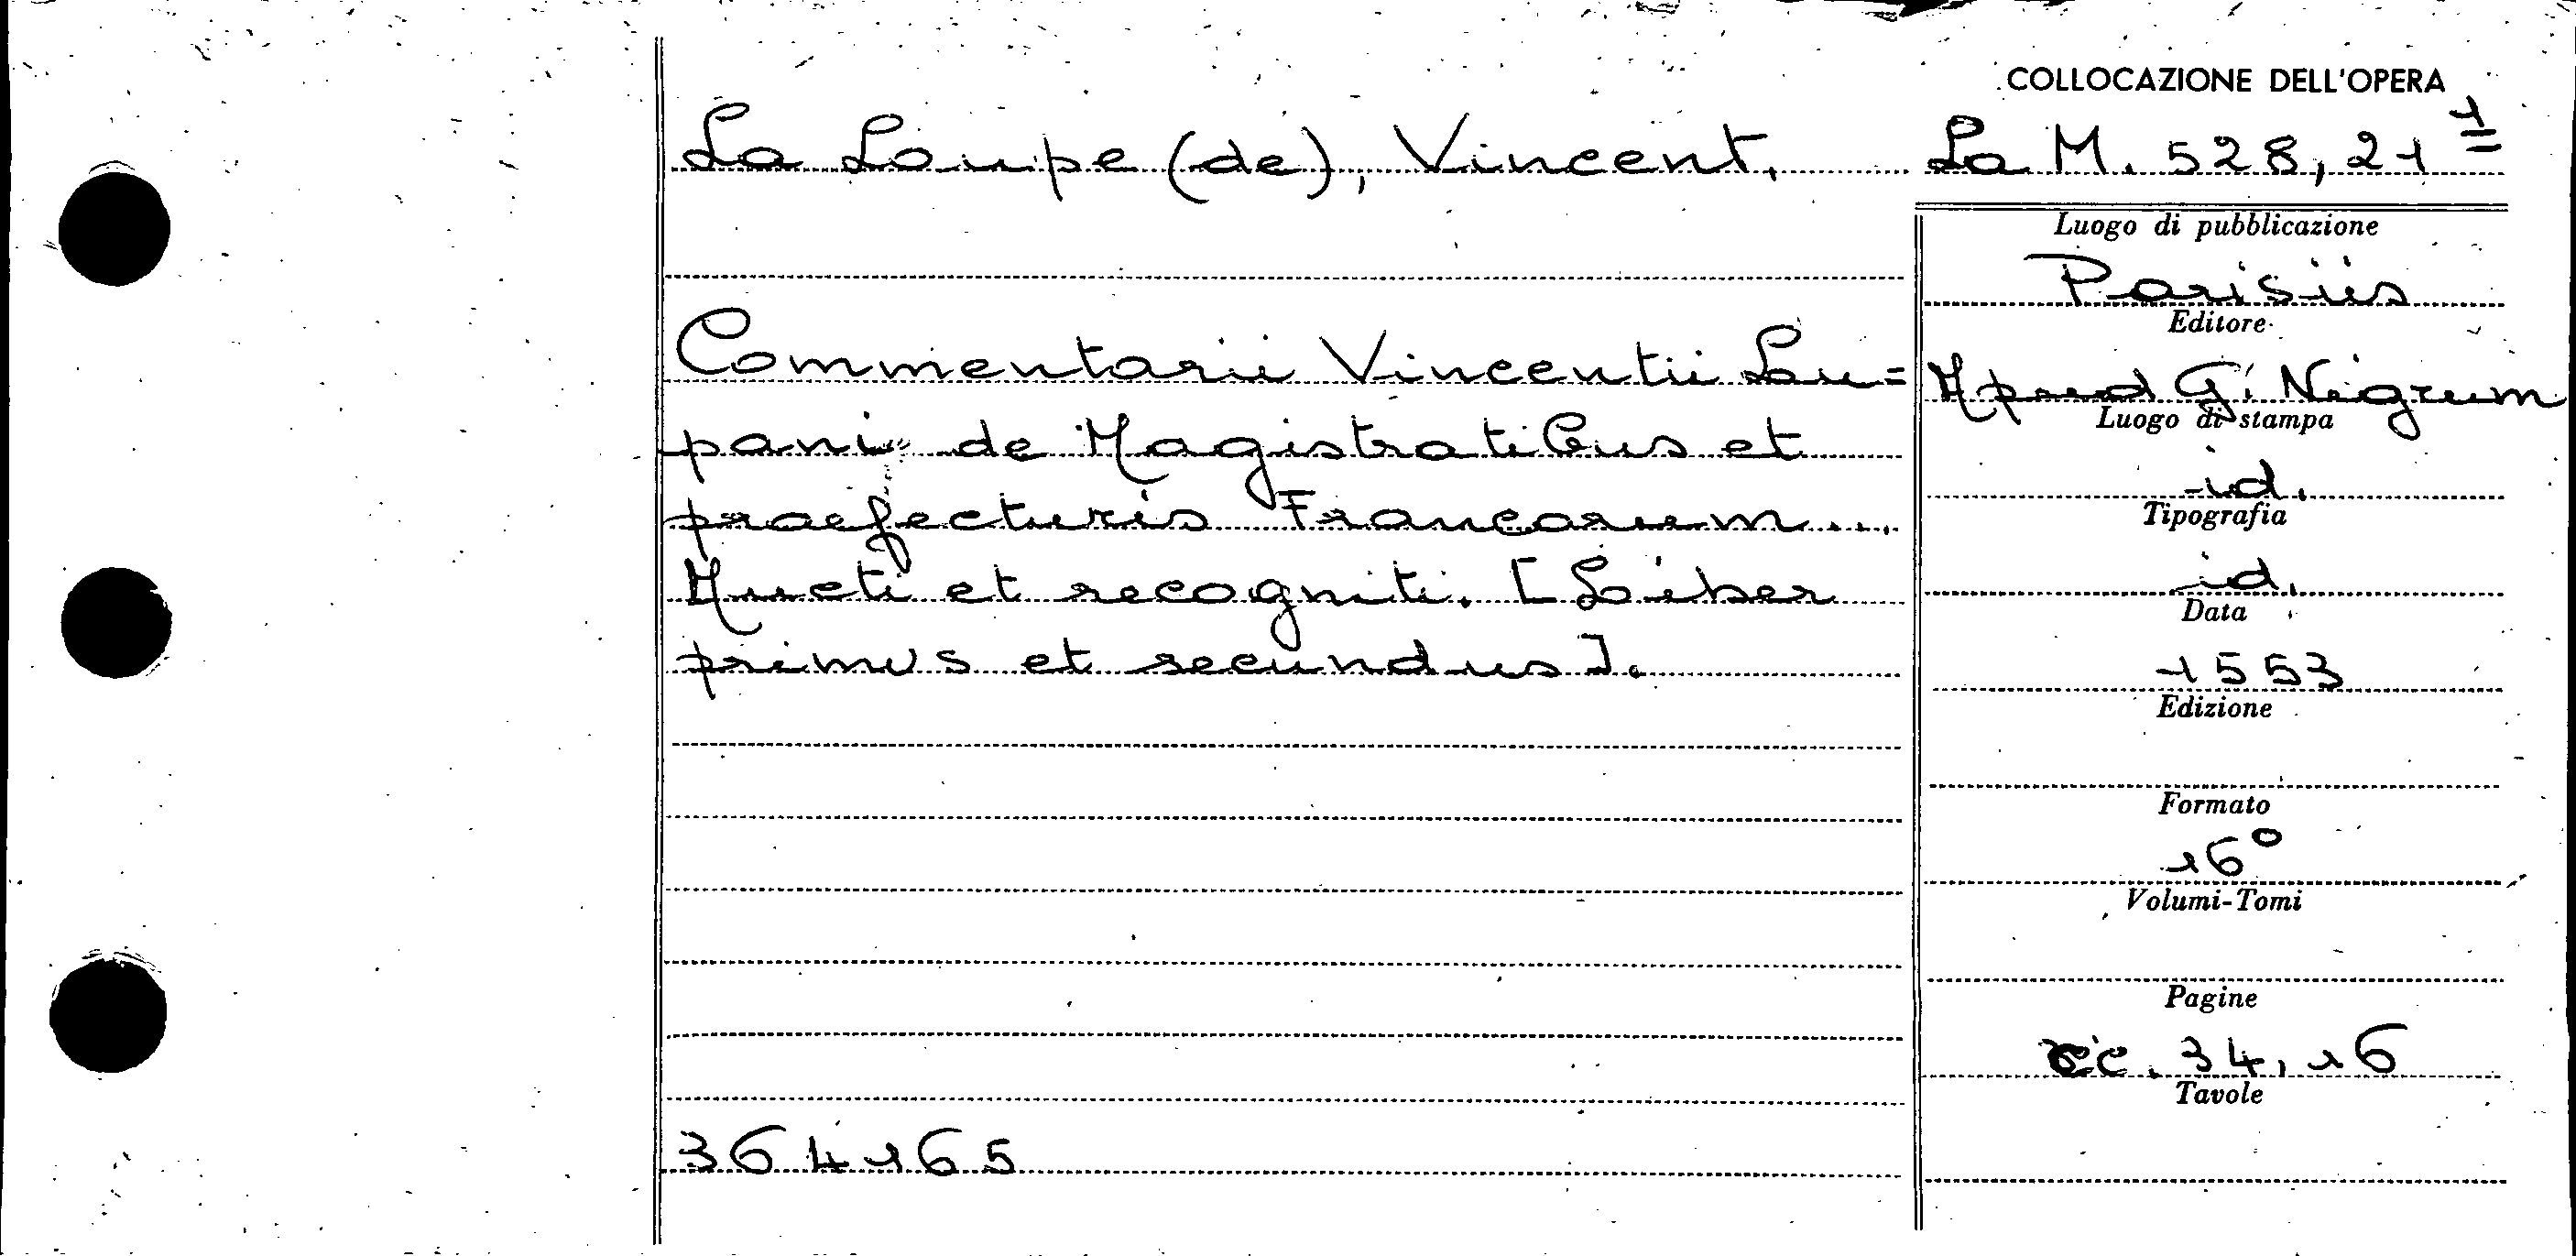 COLLOCAZIONE DELL'OPERA
La Loupe (de), Vincent.
La M. 528, 21 1=
Luogo di pubblicazione
Parisiis
Editore
Apud G. Nigrum
Luogo di stampa
id.
Tipografia
id.
Data
1553
Edizione
Formato
16°
Volumi-Tomi
Pagine
cc. 34, 16
Tavole
Commentarii Vincentii Lu=
pani de Magistratibus et
praefecturis Francorum...
Aucti et recogniti. [Liber
primus et secundus].
364165